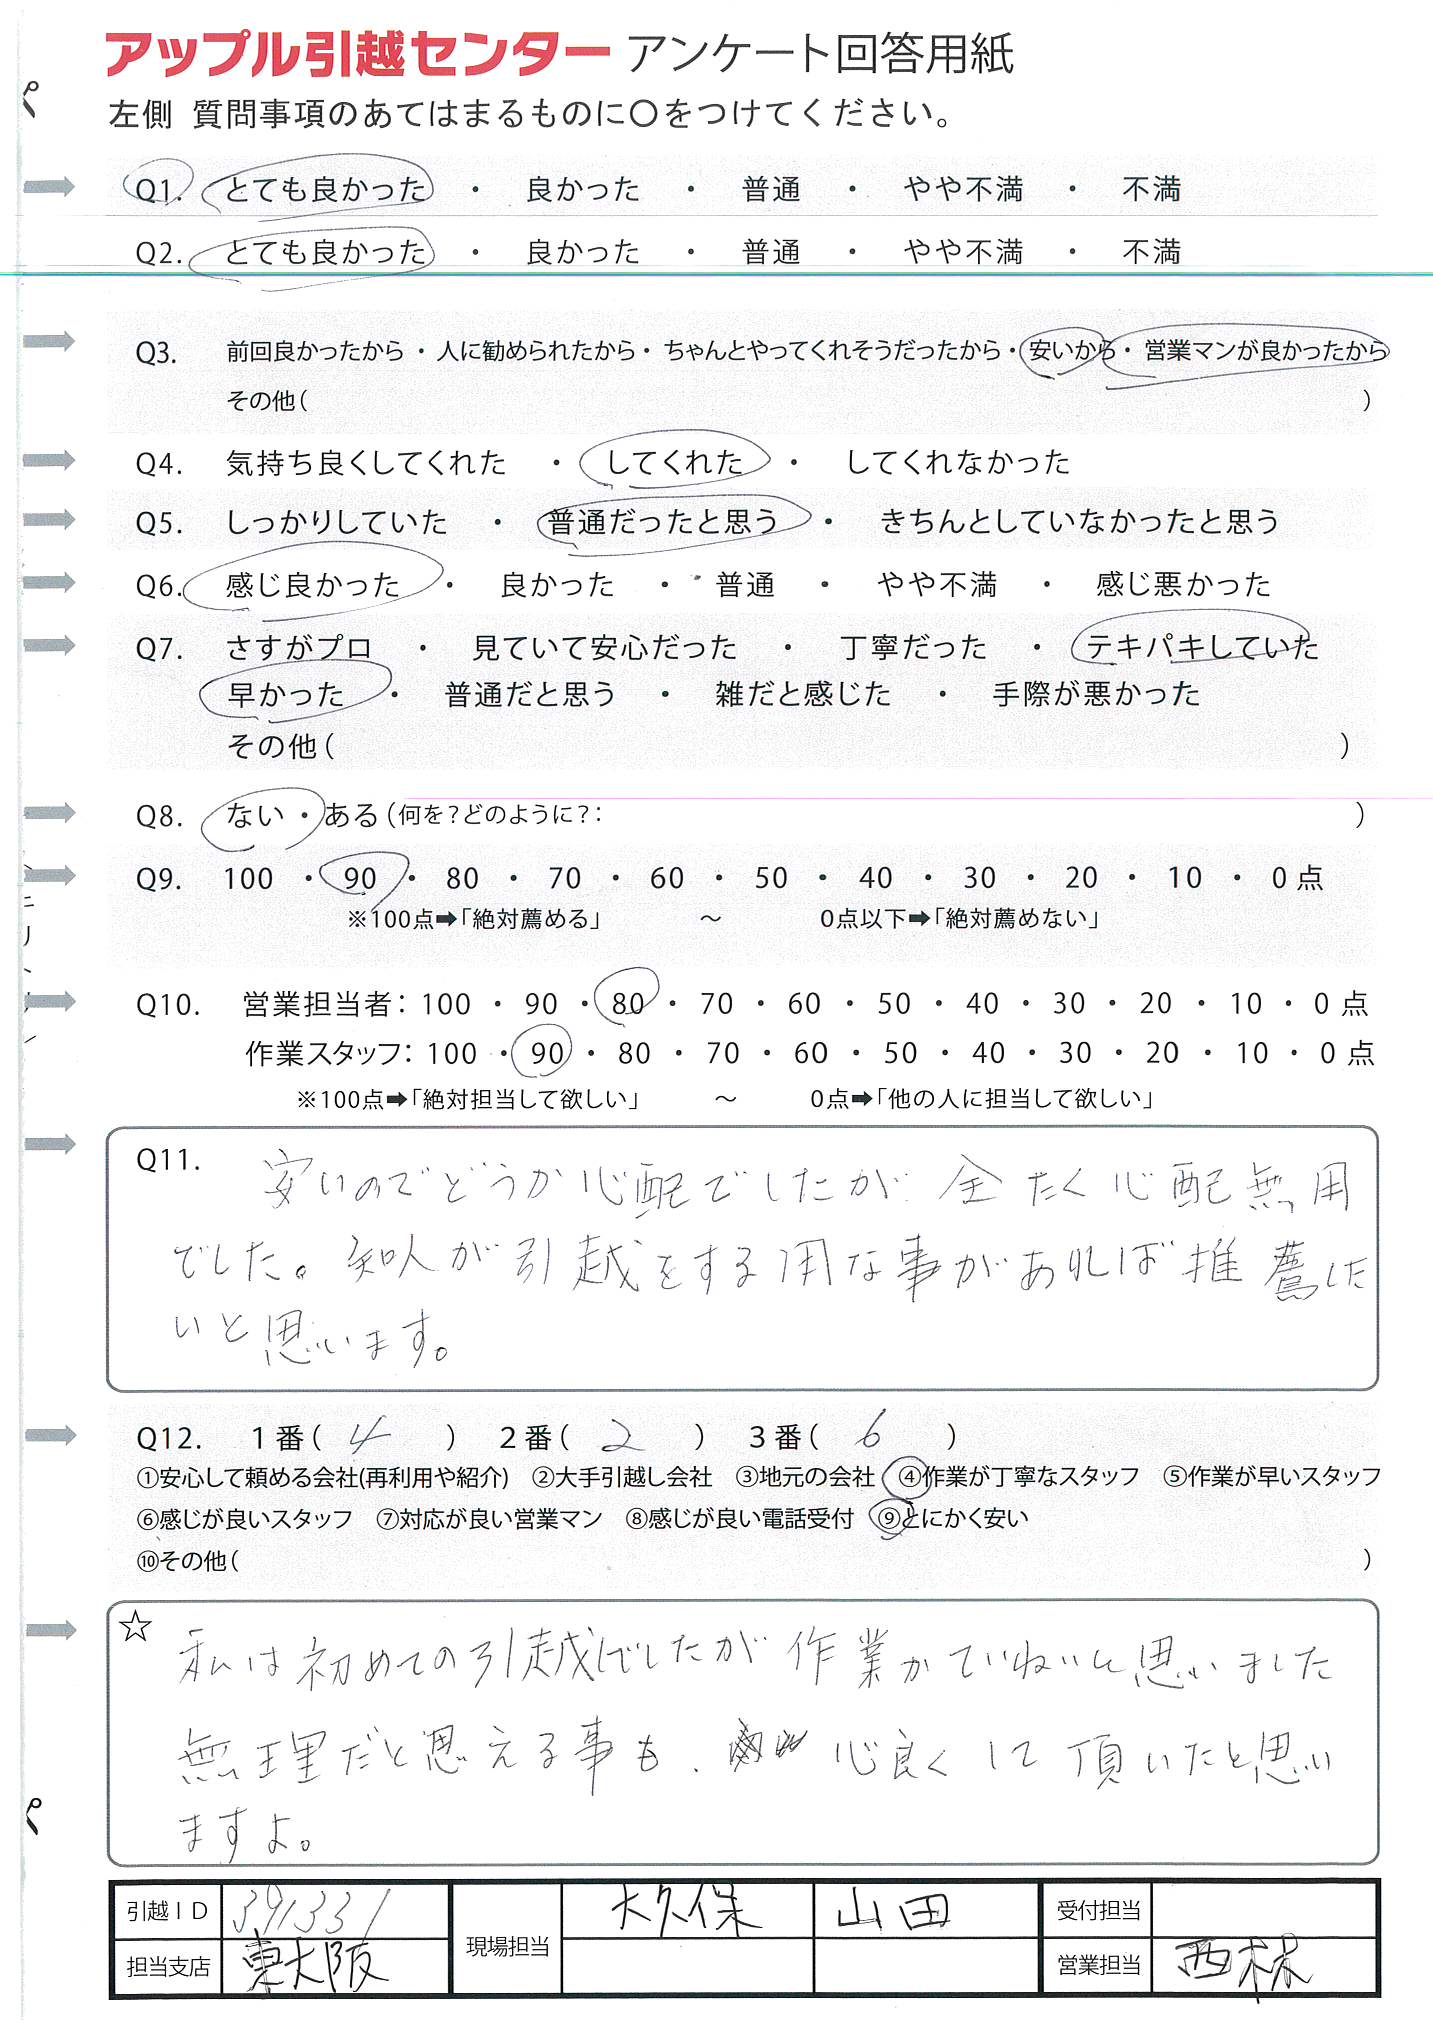 アップル引越センター アンケート回答用紙
左側 質問事項のあてはまるものに○をつけてください。
Q1. とても良かった ・ 良かった ・ 普通 ・ やや不満 ・ 不満
Q2. とても良かった ・ 良かった ・ 普通 ・ やや不満 ・ 不満
Q3. 前回良かったから ・ 人に勧められたから ・ ちゃんとやってくれそうだったから ・ 安いから ・ 営業マンが良かったから
その他( )
Q4. 気持ち良くしてくれた ・ してくれた ・ してくれなかった
Q5. しっかりしていた ・ 普通だったと思う ・ きちんとしていなかったと思う
Q6. 感じ良かった ・ 良かった ・ 普通 ・ やや不満 ・ 感じ悪かった
Q7. さすがプロ ・ 見ていて安心だった ・ 丁寧だった ・ テキパキしていた
早かった ・ 普通だと思う ・ 雑だと感じた ・ 手際が悪かった
その他( )
Q8. ない ・ ある (何を?どのように?: )
Q9. 100 ・ 90 ・ 80 ・ 70 ・ 60 ・ 50 ・ 40 ・ 30 ・ 20 ・ 10 ・ 0 点
※100点➡「絶対薦める」 ～ 0点以下➡「絶対薦めない」
Q10. 営業担当者: 100 ・ 90 ・ 80 ・ 70 ・ 60 ・ 50 ・ 40 ・ 30 ・ 20 ・ 10 ・ 0 点
作業スタッフ: 100 ・ 90 ・ 80 ・ 70 ・ 60 ・ 50 ・ 40 ・ 30 ・ 20 ・ 10 ・ 0 点
※100点➡「絶対担当して欲しい」 ～ 0点➡「他の人に担当して欲しい」
Q11. 安いのでどうか心配でしたが 全たく心配無用
でした。知人が引越をする用な事があれば推薦した
いと思います。
Q12. 1番( 4 ) 2番( 2 ) 3番( 6 )
①安心して頼める会社(再利用や紹介) ②大手引越し会社 ③地元の会社 ④作業が丁寧なスタッフ ⑤作業が早いスタッフ
⑥感じが良いスタッフ ⑦対応が良い営業マン ⑧感じが良い電話受付 ⑨とにかく安い
⑩その他( )
☆ 私は初めての引越しでしたが 作業がていねいと思いました
無理だと思える事も、心良くして頂いたと思い
ますよ。
引越ID 391331 現場担当 大久保 山田 受付担当
担当支店 東大阪 営業担当 西林